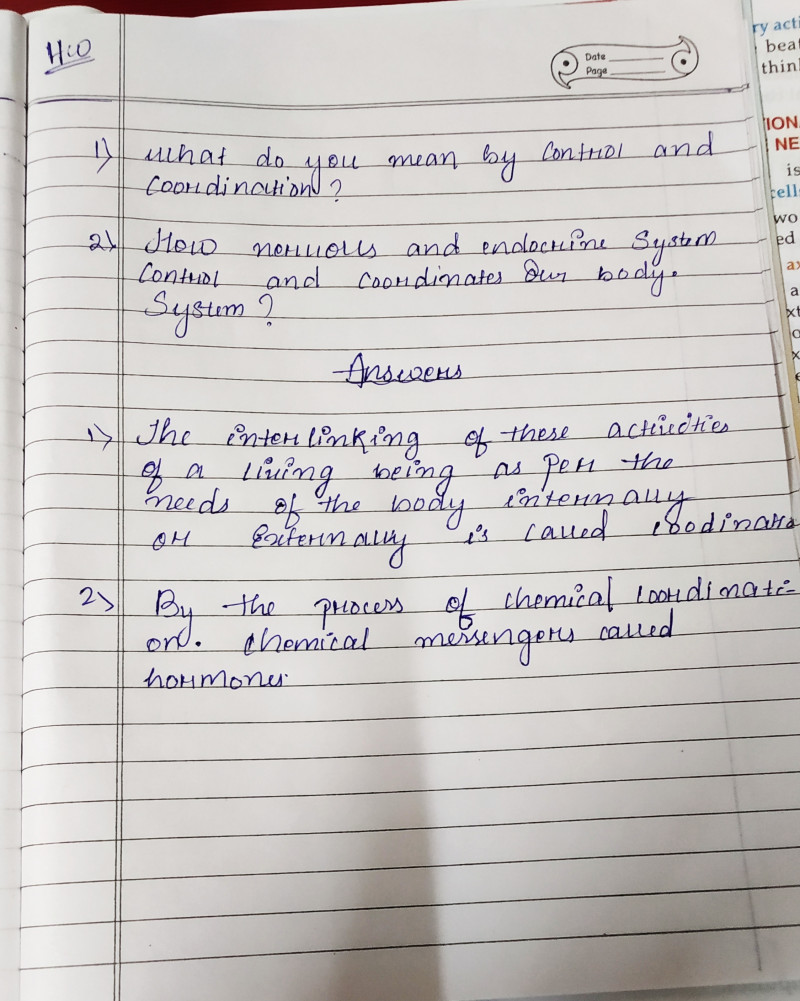 H.W
Date
Page
1) What do you mean by control and
coordination?
2) How nervous and endocrine System
control and coordinates our body.
System?
Answers
1) The interlinking of these activities
of a living being as per the
needs of the body internally
or externally is called
2) By the process of chemical coordinati-
on. chemical messengers called
hormones.
ry acti
beat
thin
ION
NE
is
cell
wo
ed
ax
a
xt